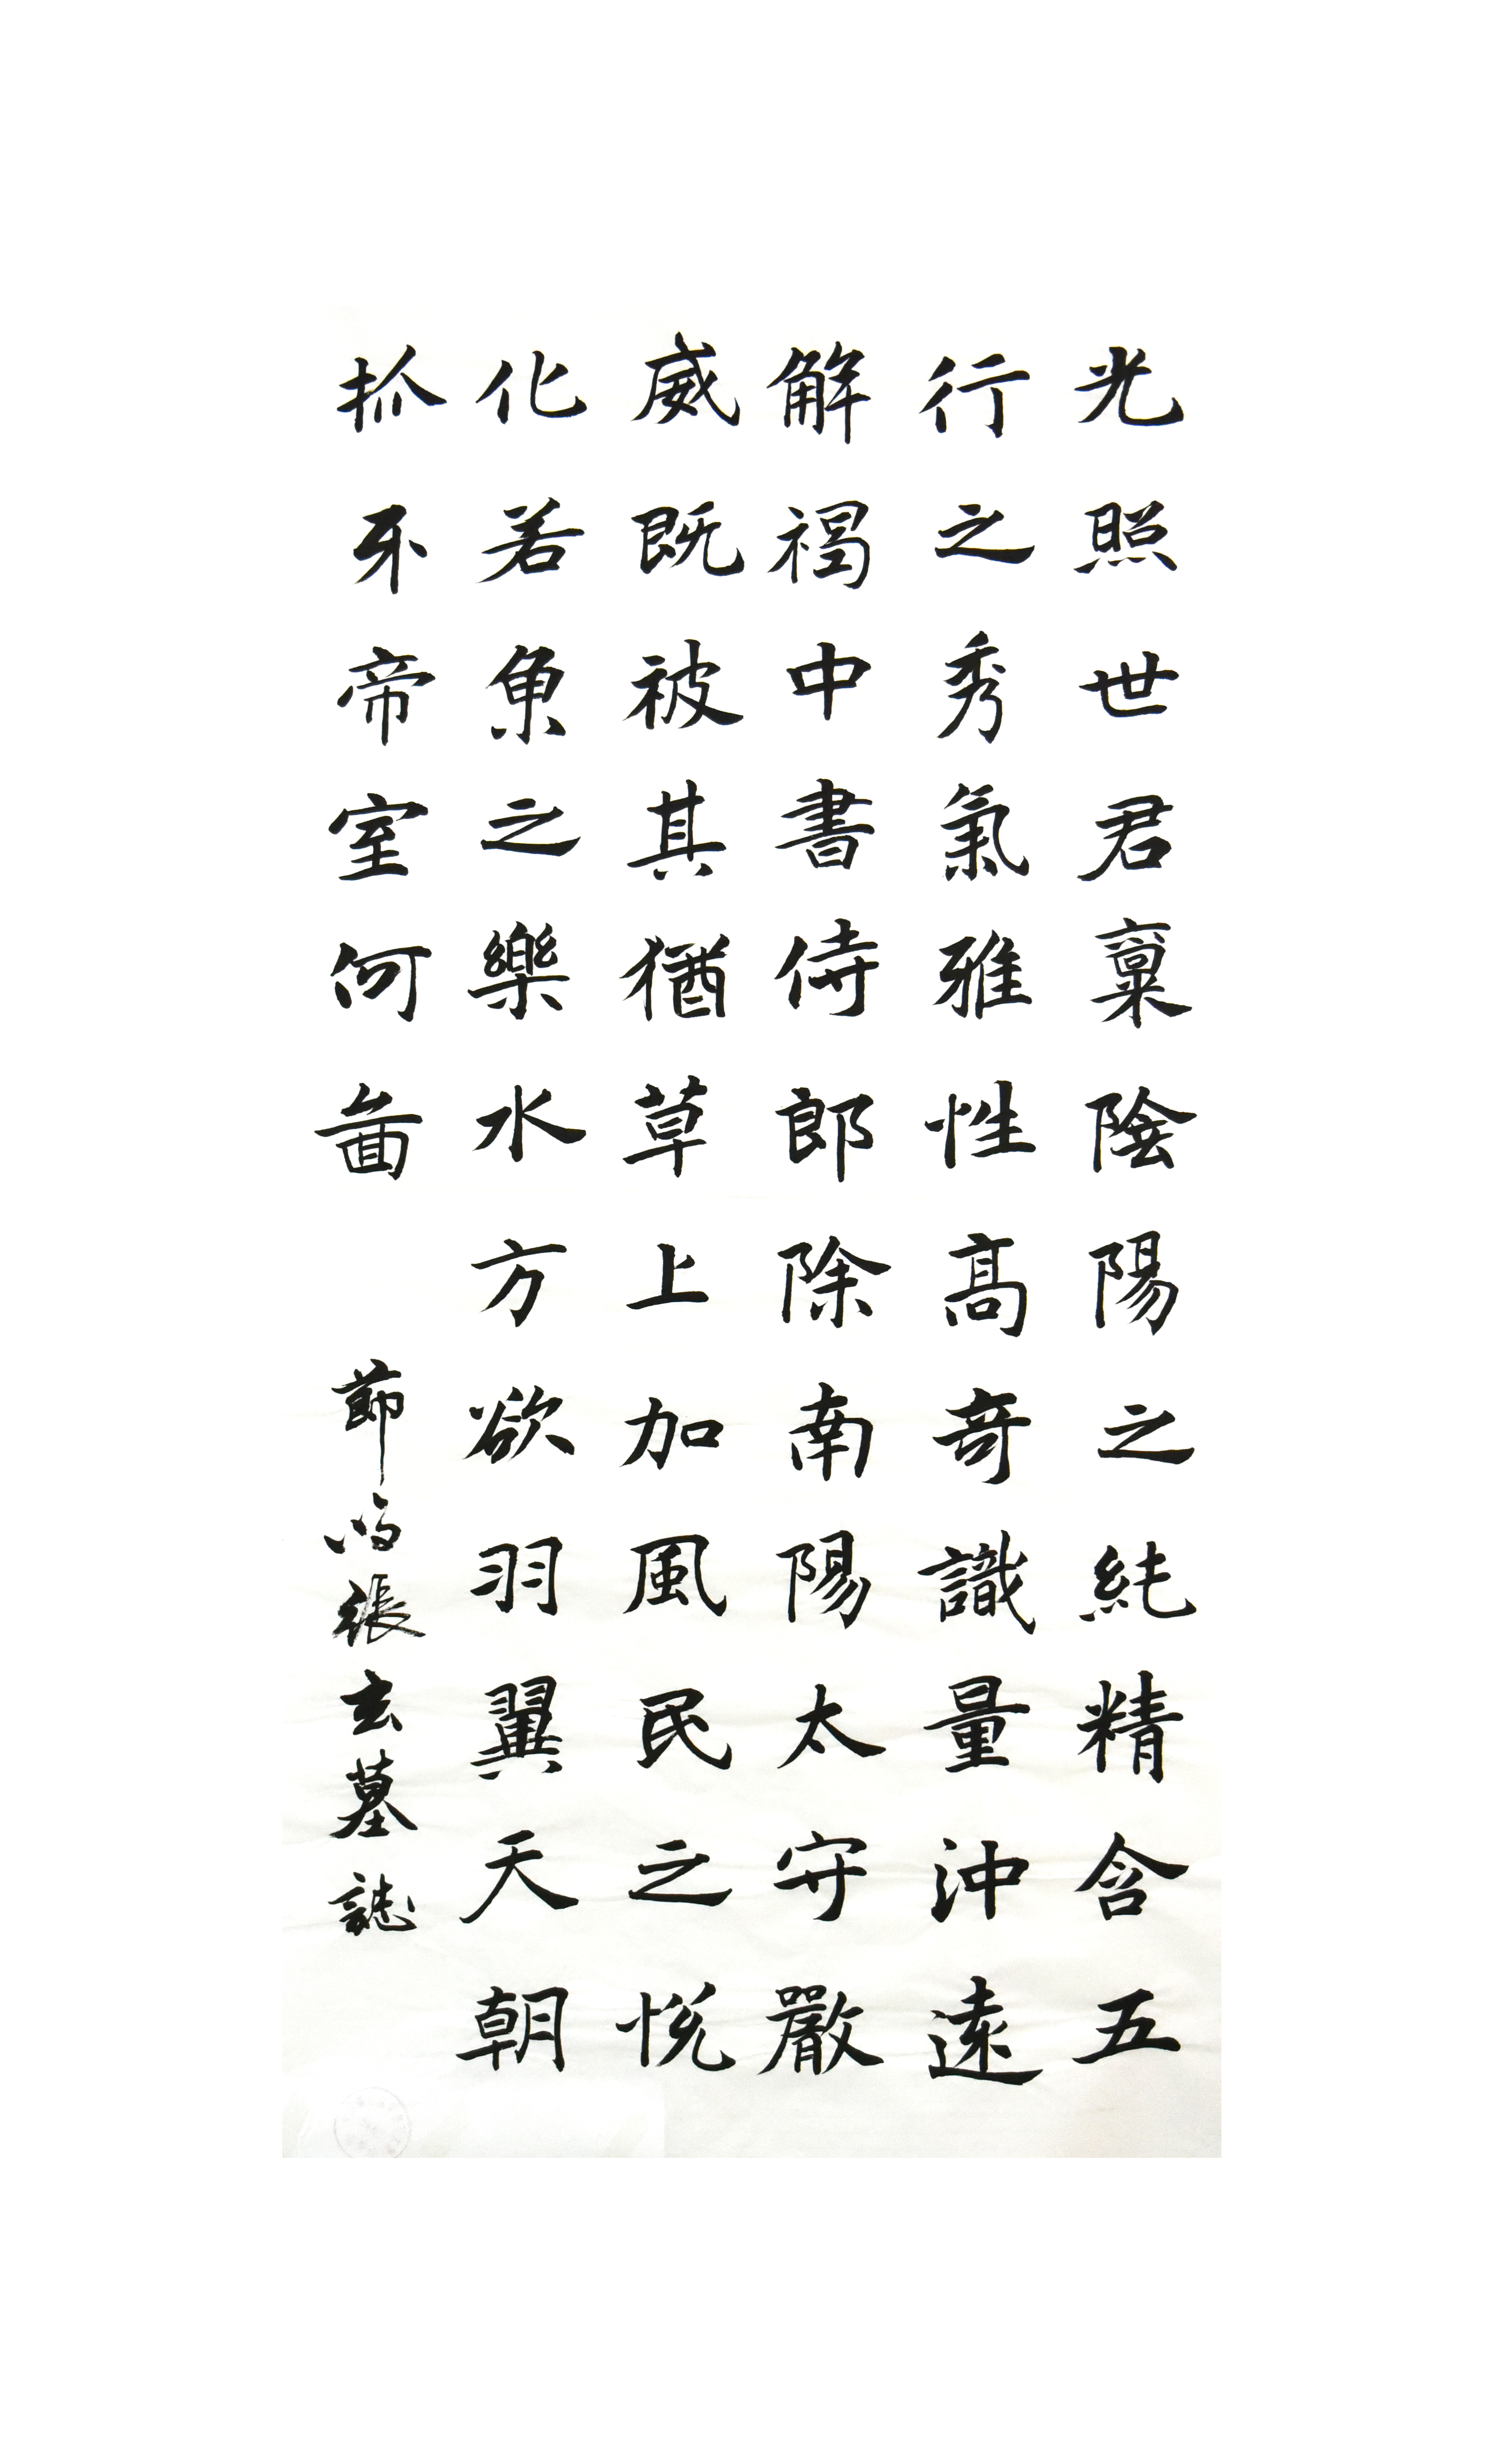 光照世君稟陰陽之純精含五
行之秀氣雅性高奇識量沖遠
解褐中書侍郎除南陽太守嚴
威既被其猶草上加風民之悅
化若魚之樂水方欲羽翼天朝
抓牙帝室何啚
節臨張玄墓誌